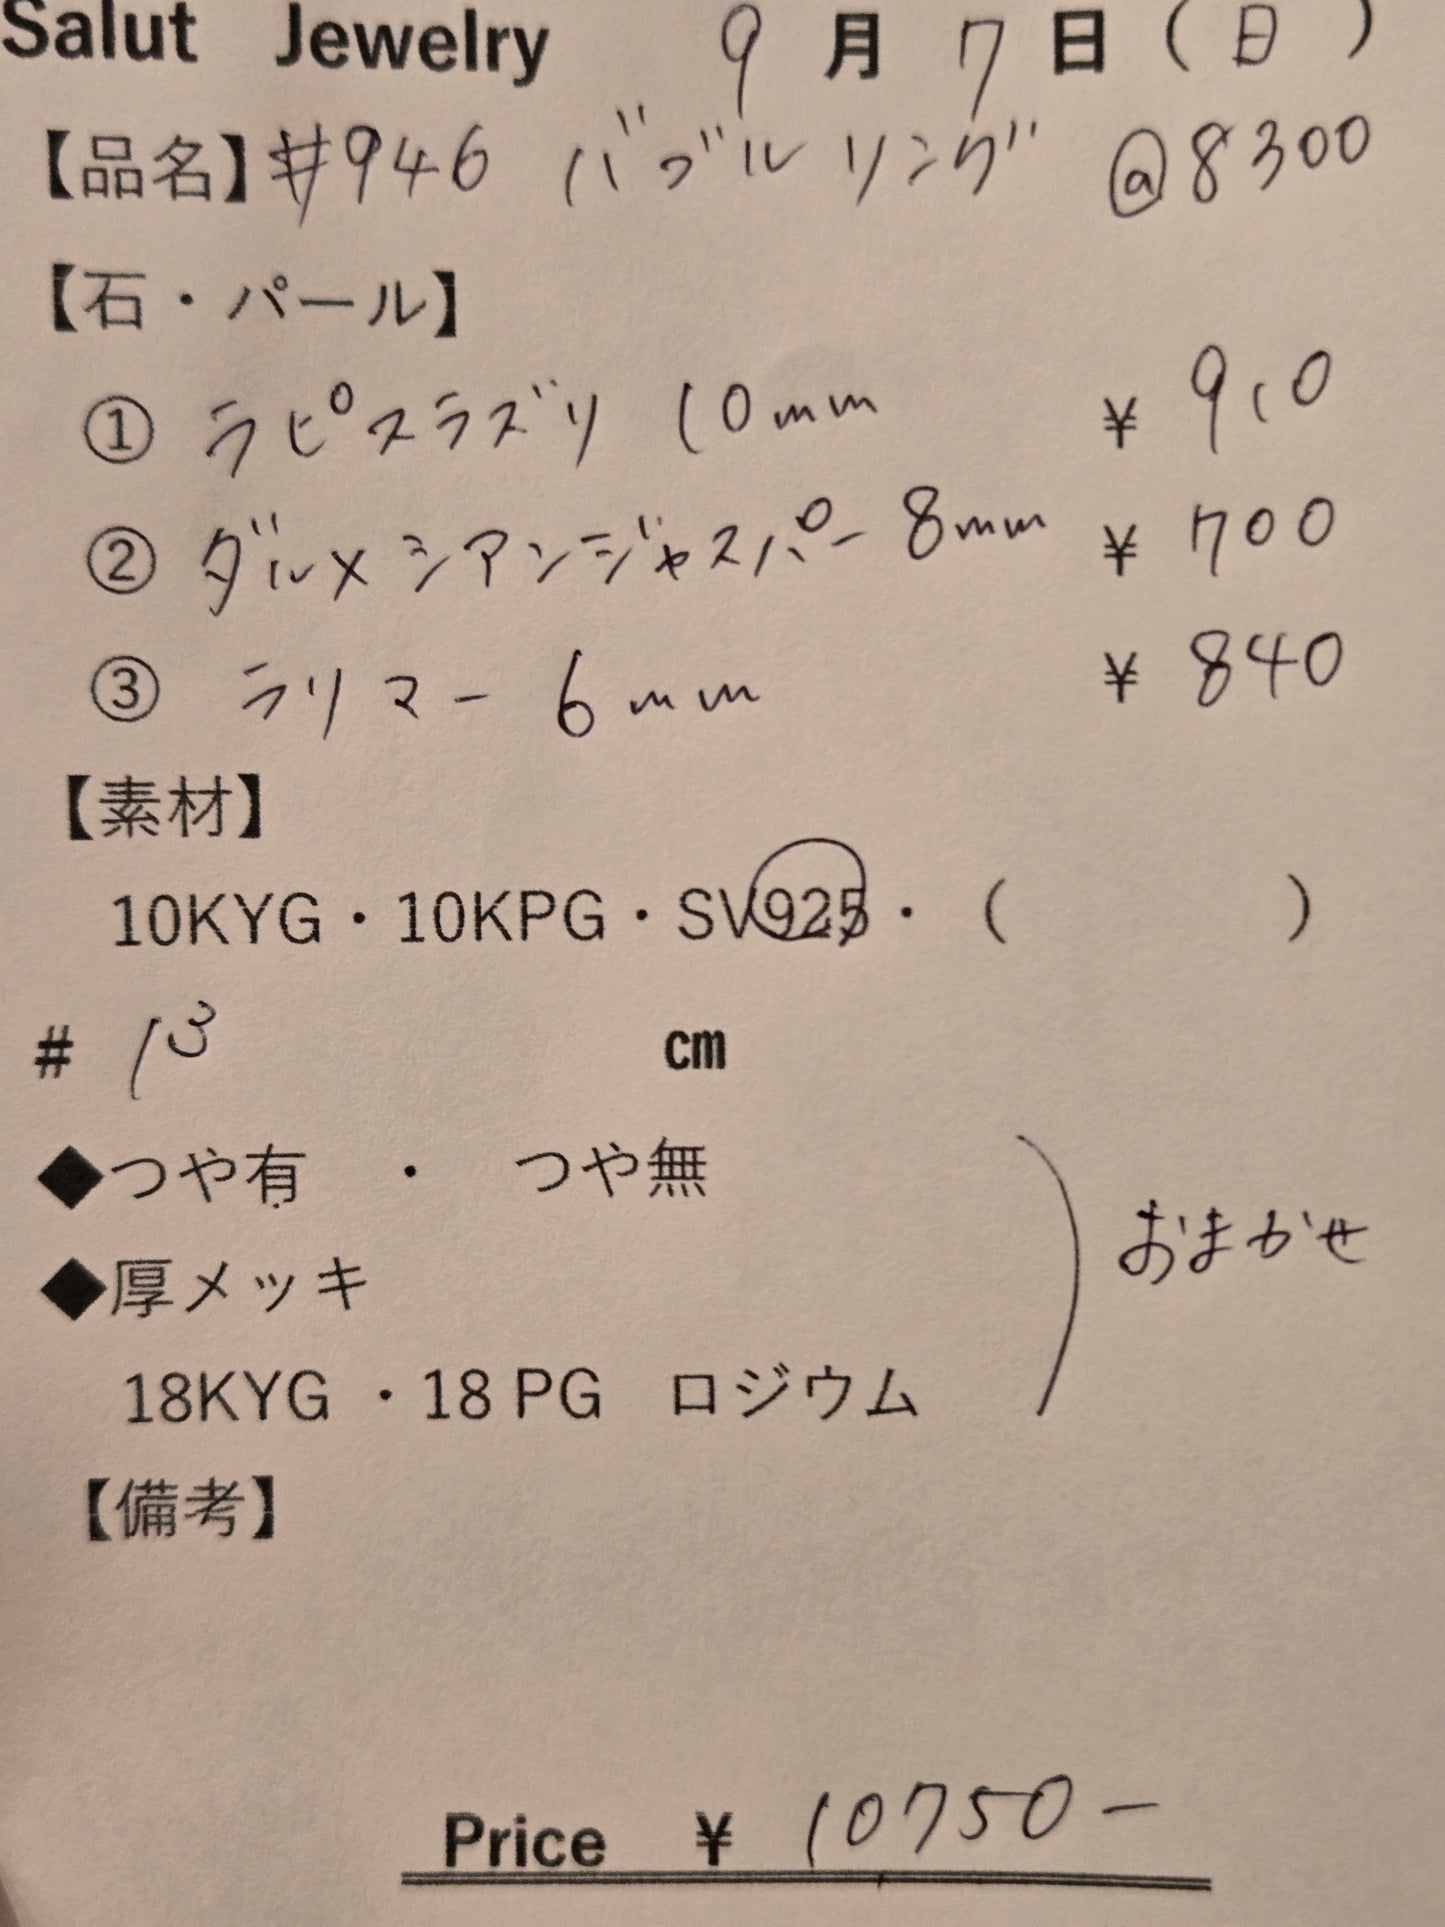 Salut Jewelry 9月7日(日)
【品名】#946 バブルリング @8300
【石・パール】
① ラピスラズリ 10mm ¥910
② ダルメシアンジャスパー 8mm ¥700
③ ラリマー 6mm ¥840
【素材】
10KYG・10KPG・SV925・( )
# 13 cm
◆つや有 ・ つや無
おまかせ
◆厚メッキ
18KYG ・18 PG ロジウム
【備考】
Price ¥ 10750-